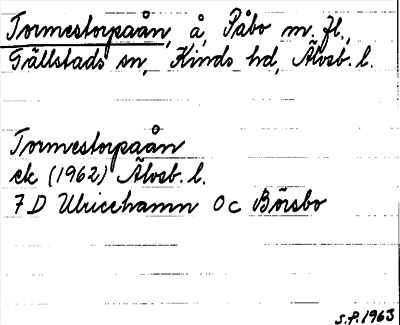 Tormestorpaån, å, Påbo m. fl.,
Tällstads sn, Kinds hd, Älvsb. l.
Tormestorpaån
ek (1962) Älvsb. l.
7 D Ulricehamn 0 c Börsbo
S.P. 1963